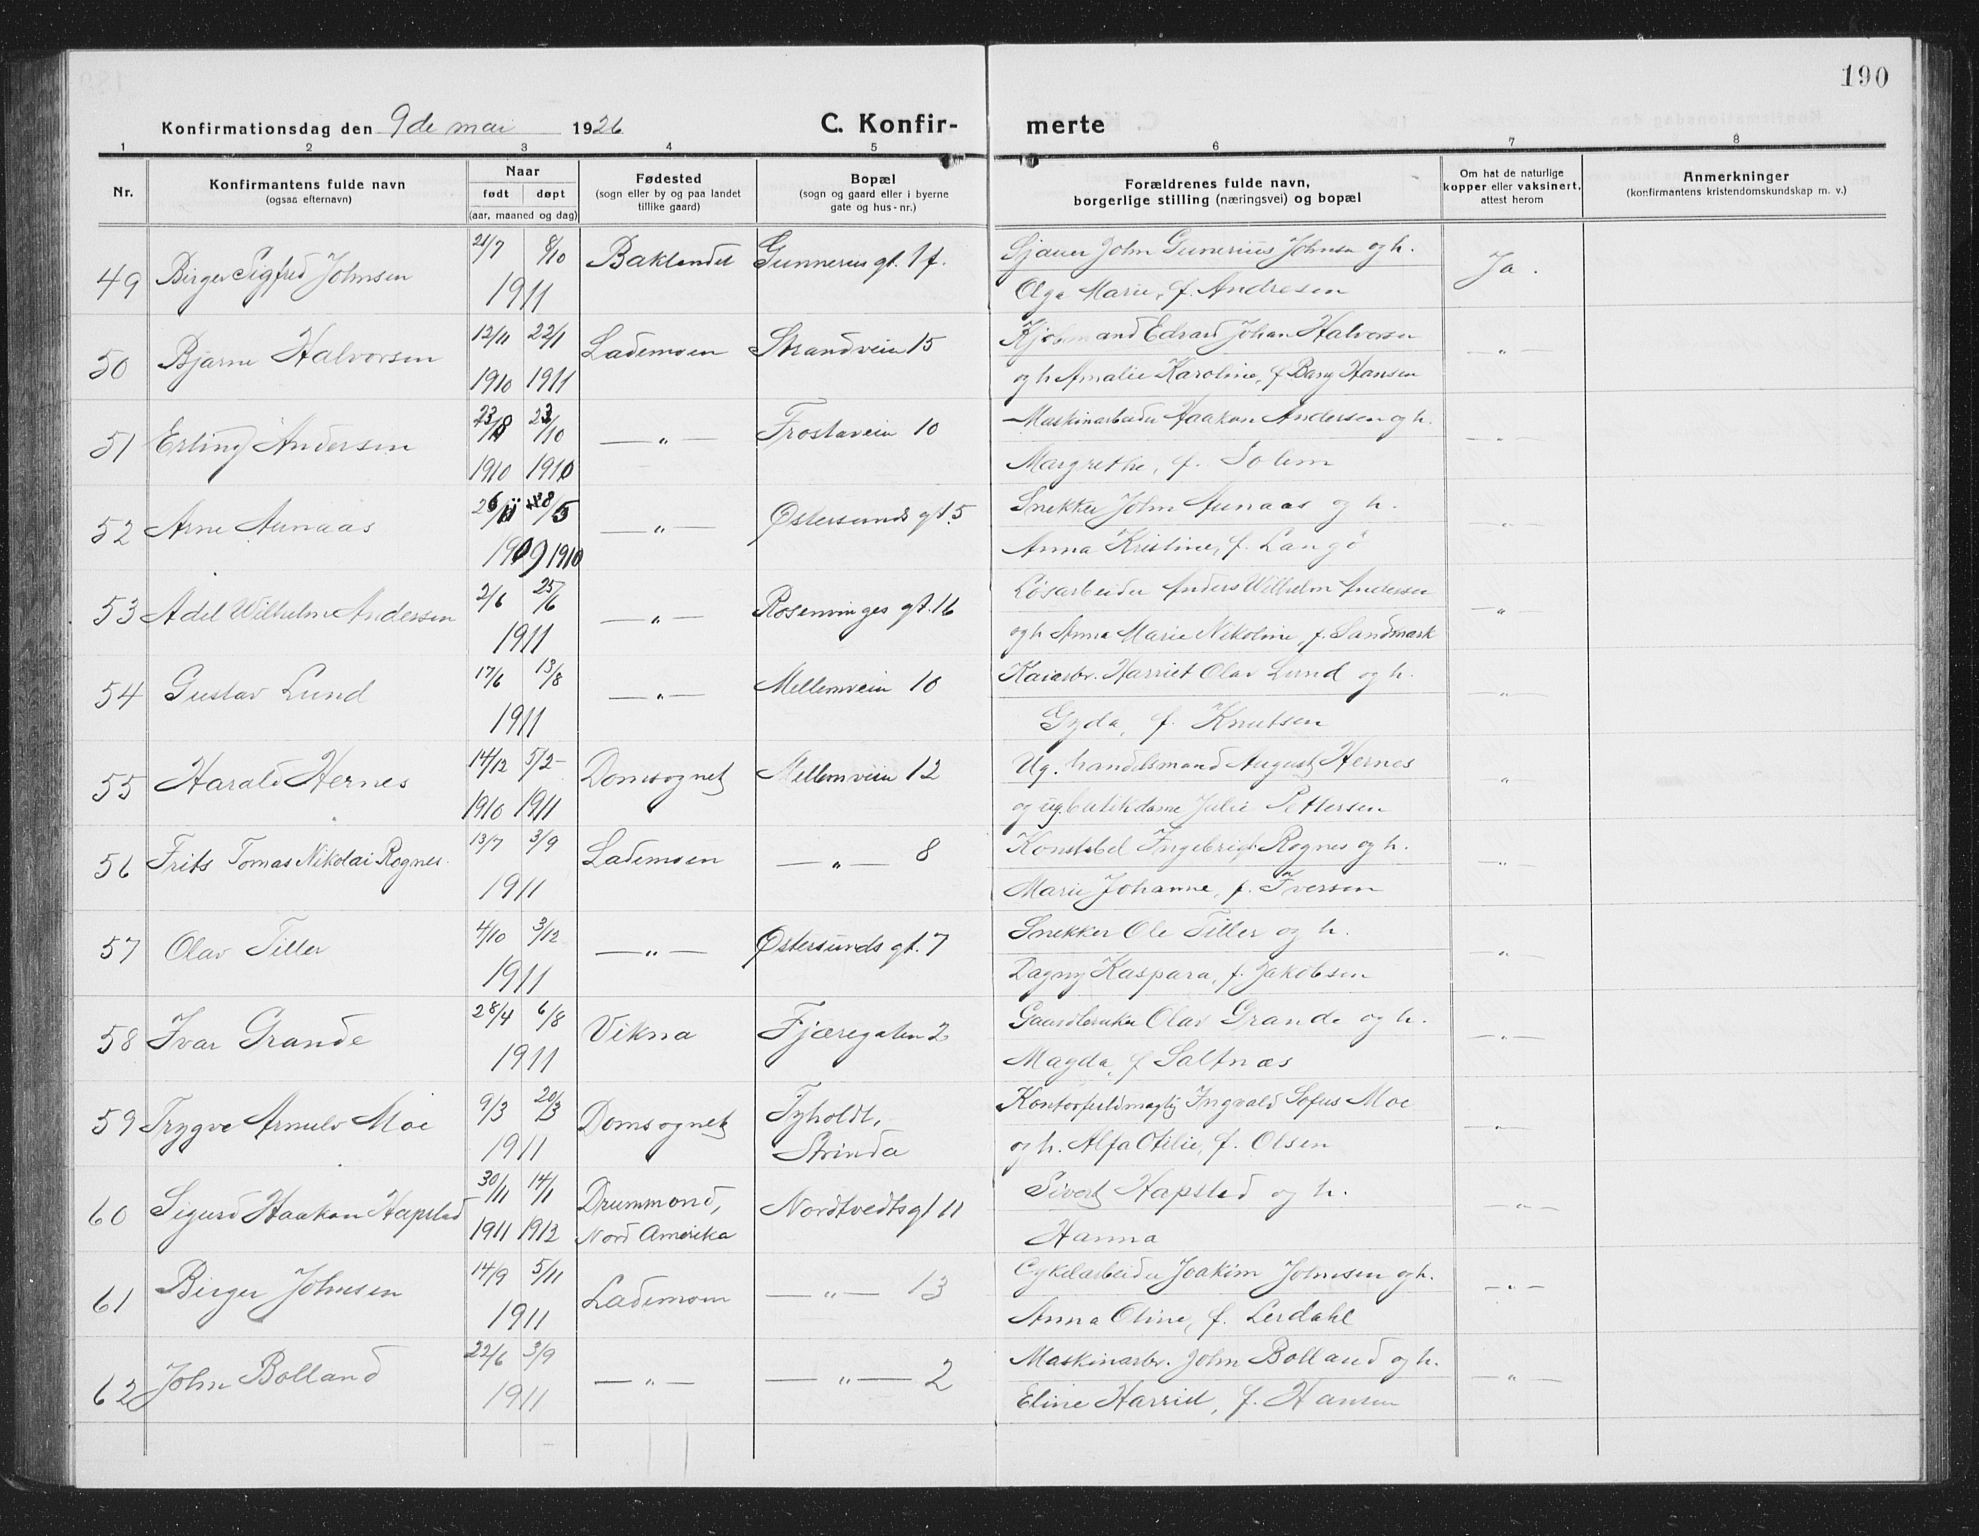 190
Konfirmationsdag den 9de mai 1926 C. Konfir- merte
1 2 3 4 5 6 7 8
Nr. Konfirmantens fulde navn (ogsaa efternavn) Naar født døpt (aar, maaned og dag) Fødested (sogn eller by og paa landet tillike gaard) Bopæl (sogn og gaard eller i byerne gate og hus-nr.) Forældrenes fulde navn, borgerlige stilling (næringsvei) og bopæl Om hat de naturlige kopper eller vaksinert, attest herom Anmerkninger (konfirmantens kristendomskundskap m. v.)
49 Birger Sigfred Johnsen 21/7 8/10 1911 Baklandet Gunnerus gt. 1f. Sjauer John Gunerius Johnsen og h.
Olga Marie, f. Andresen Ja.
50 Bjarne Halvorsen 12/11 1910 22/1 1911 Lademoen Strandveien 15 Kjøbmand Edvard Johan Halvorsen
og h. Amalie Karoline, f. Bang Hansen — " —
51 Erling Andersen 23/8 1910 23/10 1910 — " — Frostaveien 10 Maskinarbeider Haakon Andersen og h.
Margrethe, f. Solem — " —
52 Arne Aunaas 26/11 1909 8/5 1910 — " — Østersunds gt. 5 Snekker John Aunaas og h.
Anna Kristine, f. Langö "
53 Adel Wilhelm Andersen 2/6 25/6 1911 — " — Rosenvinges gt. 16 Løsarbeider Anders Wilhelm Andersen
og h. Anna Marie Nikoline, f. Sandmark — " —
54 Gustav Lund 17/6 13/8 1911 — " — Mellemveien 10 Kaiarbr. Harriet Olav Lund og h.
Gyda, f. Knutsen "
55 Harald Hernes 14/12 1910 5/2 1911 Domsognet Mellemveien 12 Ug. handelsmand August Hernes
og ug. butikdame Julie Pettersen "
56 Frits Tomas Nikolai Rognes. 13/7 3/9 1911 Lademoen — " — 8 Konstabel Ingebrigt Rognes og h.
Marie Johanne, f. Iversen — " —
57 Olav Tiller 4/10 3/12 1911 — " — Østersunds gt. 7 Snekker Ole Tiller og h.
Dagny Kaspara, f. Jakobsen — " —
58 Ivar Grande 28/4 6/8 1911 Vikna Fjæregaten 2 Gaardbruker Olav Grande og h.
Magda, f. Saltnæs — " —
59 Trygve Arnulv Moe 9/3 20/3 1911 Domsognet Tyholdt,
Strinda Kontorfuldmægtig Ingvald Sofus Moe
og h. Alfa Otilie, f. Olsen — " —
60 Sigurd Haakon Hapstad 30/11 1911 14/1 1912 Drummond,
Nord Amerika Nordtvedtsgt 11 Sivert Hapstad og h.
Hanna — " —
61 Birger Johnsen 14/9 5/11 1911 Lademoen — " — 13 Cykelarbeider Joakim Johnsen og h.
Anna Oline, f. Lerdahl — " —
62 John Bolland 22/6 3/9 1911 — " — — " — 2 Maskinarbr. John Bolland og h.
Eline Harriet, f. Hansen — " —